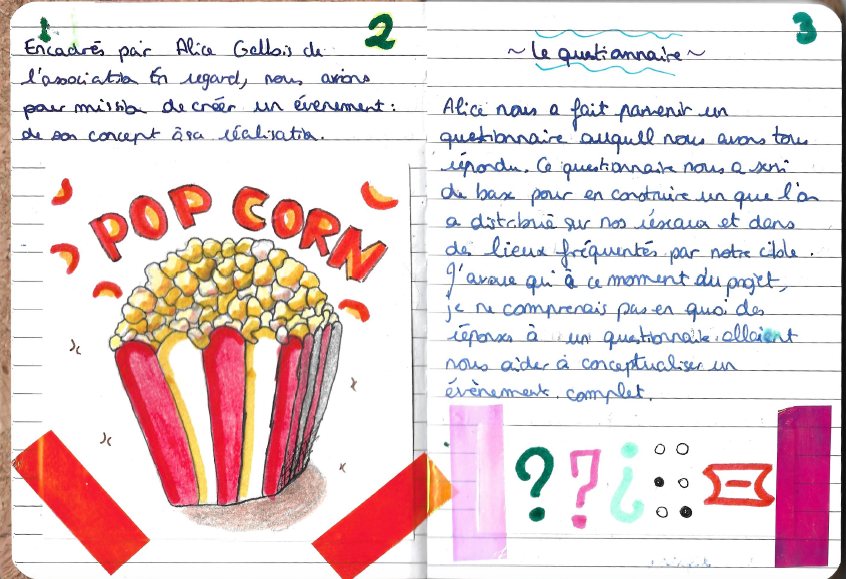 1
2
Encadrés par Alice Gallois de
l'association En regard, nous avions
pour mission de créer un évènement :
de son concept à sa réalisation.
POP CORN
3
~ Le questionnaire ~
Alice nous a fait parvenir un
questionnaire auquel nous avons tous
répondu. Ce questionnaire nous a servi
de base pour en construire un que l'on
a distribué sur nos réseaux et dans
des lieux fréquentés par notre cible.
J'avoue qu'à ce moment du projet,
je ne comprenais pas en quoi des
réponses à un questionnaire allaient
nous aider à conceptualiser un
évènement complet.
? ? ¿